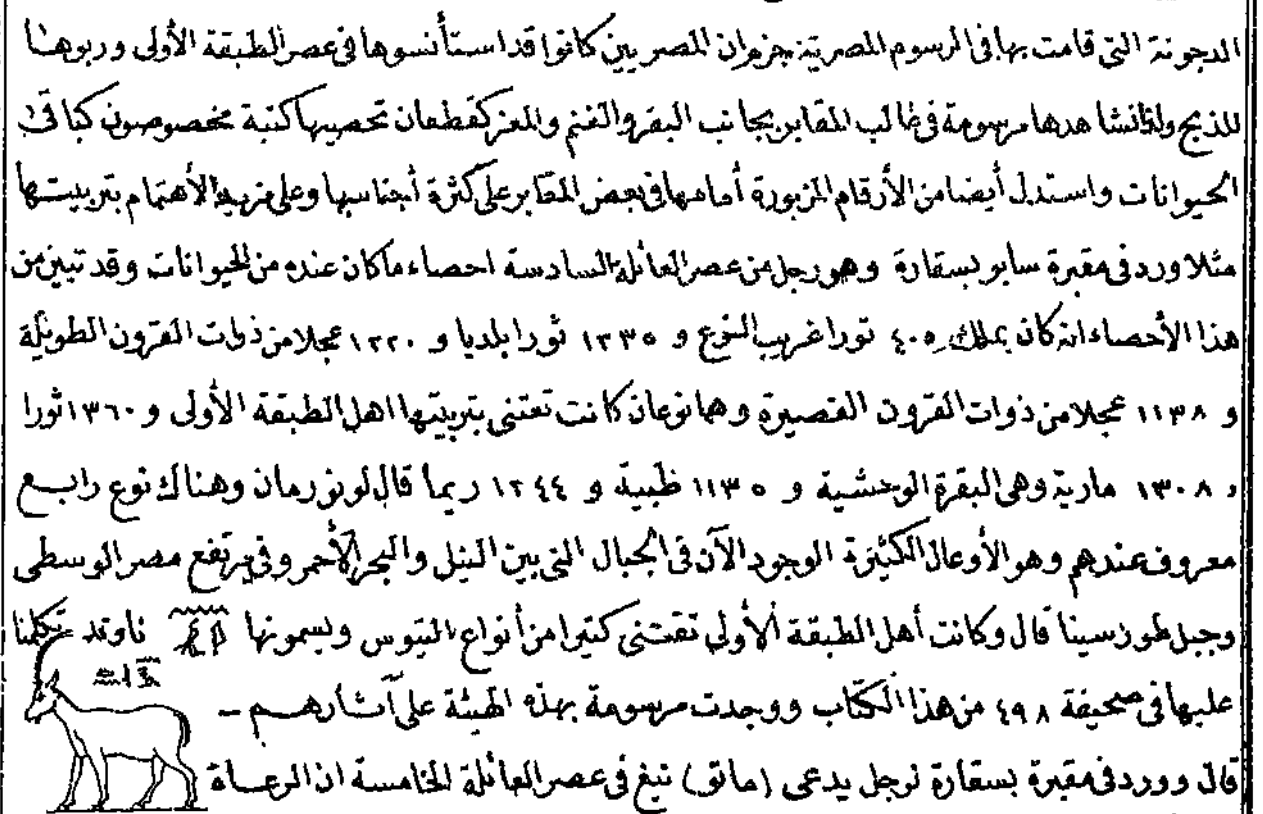 الدجونة التى قامت بها فى الرسوم المصرية جزم ان المصريين كانوا قد استأنسوها فى عصر الطبقة الأولى وربوها
للذبح ولذا نشاهدها مرسومة فى غالب المقابر بجانب البقر والغنم والمعز كقطعان تحصيها كتبة مخصوصون كباقى
الحيوانات واستدل أيضا من الأرقام المزبورة أمامها فى بعض المقابر على كثرة أجناسها وعلى مزيد الأهتمام بتربيتها
مثلا ورد فى مقبرة سابو بسقارة وهو رجل من عصر العائلة السادسة احصاء ما كان عنده من الحيوانات وقد تبين من
هذا الأحصاء انه كان يملك ٤٠٥ ثورا غريب النوع و ١٢٣٥ ثورا بلديا و ١٢٢٠ عجلا من ذوات القرون الطويلة
و ١١٣٨ عجلا من ذوات القرون القصيرة وهما نوعان كانت تعتنى بتربيتها اهل الطبقة الأولى و ١٣٦٠ ثورا
و ١٣٠٨ مارية وهى البقرة الوحشية و ١١٣٥ ظبية و ١٢٤٤ ريما قال لونورمان وهناك نوع رابع
معروف عندهم وهو الأوعال الكثيرة الوجود الآن فى الجبال التى بين النيل والبحر الأحمر وفى مرتفع مصر الوسطى
وجبل طورسينا قال وكانت أهل الطبقة الأولى تقتنى كثيرا من أنواع التيوس ويسمونها ناو وقد تكلمنا
عليها فى صحيفة ٤٩٨ من هذا الكتاب ووجدت مرسومة بهذه الهيئة على آثارهم –
قال وورد فى مقبرة بسقارة لرجل يدعى (مانق) نبغ فى عصر العائلة الخامسة ان الرعاة